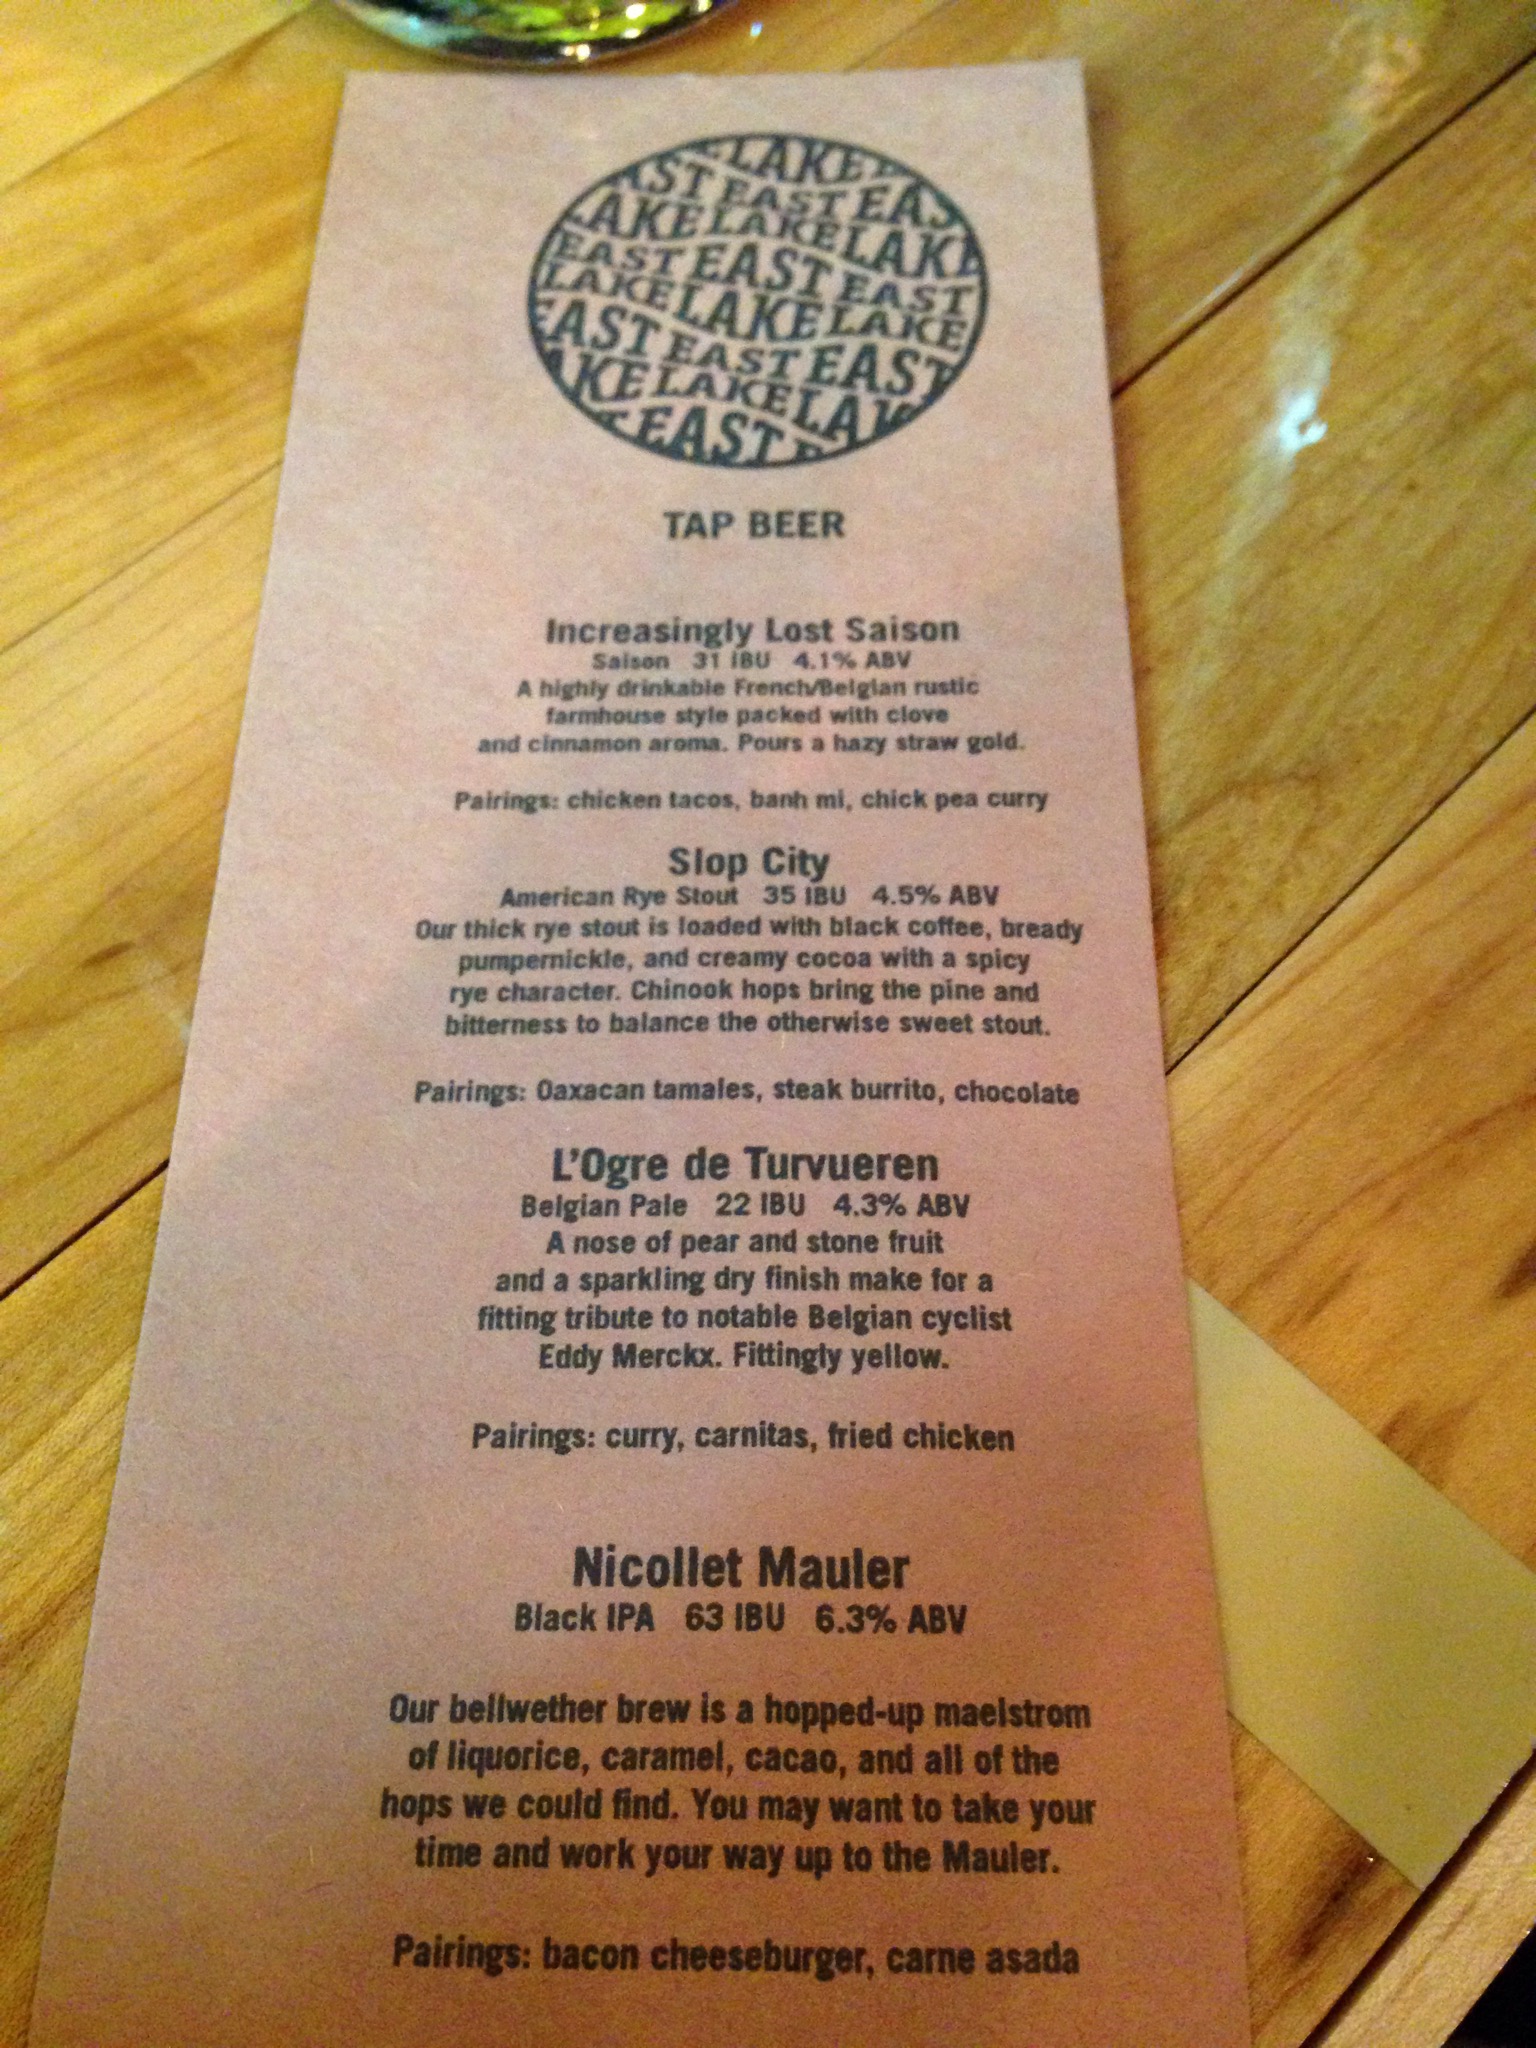 LAKE
AST EAST EAS
LAKE LAKE LAKE
EAST EAST EAST
LAKE LAKE LAKE
EAST EAST EAST
AKE LAKE LAK
EAST
TAP BEER
Increasingly Lost Saison
Saison 31 IBU 4.1% ABV
A highly drinkable French/Belgian rustic
farmhouse style packed with clove
and cinnamon aroma. Pours a hazy straw gold.
Pairings: chicken tacos, banh mi, chick pea curry
Slop City
American Rye Stout 35 IBU 4.5% ABV
Our thick rye stout is loaded with black coffee, bready
pumpernickle, and creamy cocoa with a spicy
rye character. Chinook hops bring the pine and
bitterness to balance the otherwise sweet stout.
Pairings: Oaxacan tamales, steak burrito, chocolate
L'Ogre de Turvueren
Belgian Pale 22 IBU 4.3% ABV
A nose of pear and stone fruit
and a sparkling dry finish make for a
fitting tribute to notable Belgian cyclist
Eddy Merckx. Fittingly yellow.
Pairings: curry, carnitas, fried chicken
Nicollet Mauler
Black IPA 63 IBU 6.3% ABV
Our bellwether brew is a hopped-up maelstrom
of liquorice, caramel, cacao, and all of the
hops we could find. You may want to take your
time and work your way up to the Mauler.
Pairings: bacon cheeseburger, carne asada